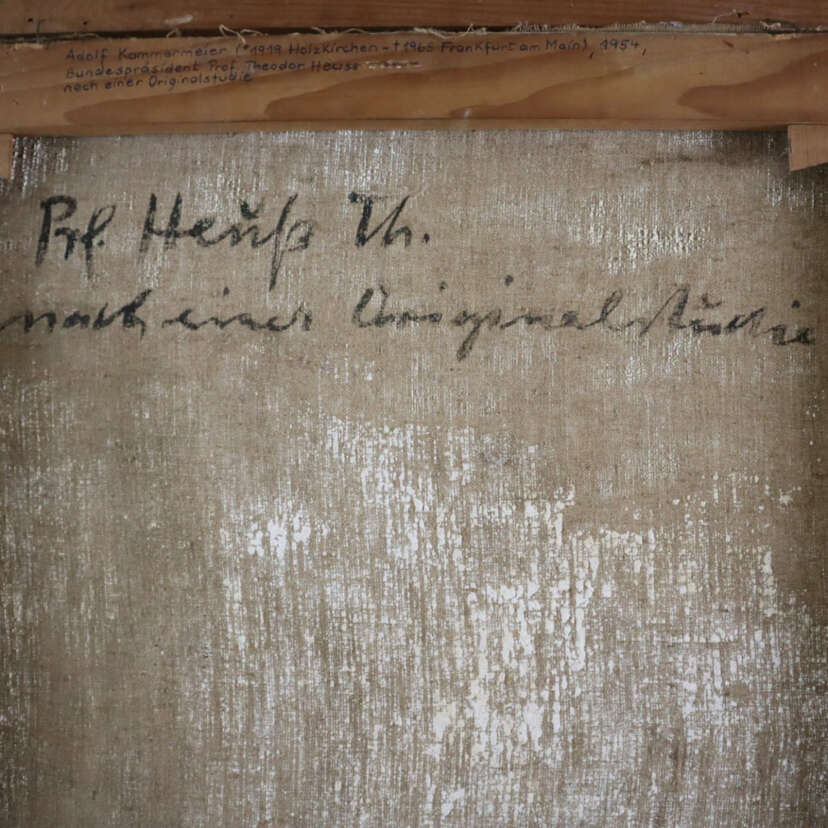 Adolf Kammermeier (*1919 Holzkirchen - †1965 Frankfurt am Main), 1954,
Bundespräsident Prof. Theodor Heuss
nach einer Originalstudie
Prf. Heuß Th.
nach einer Originalstudie